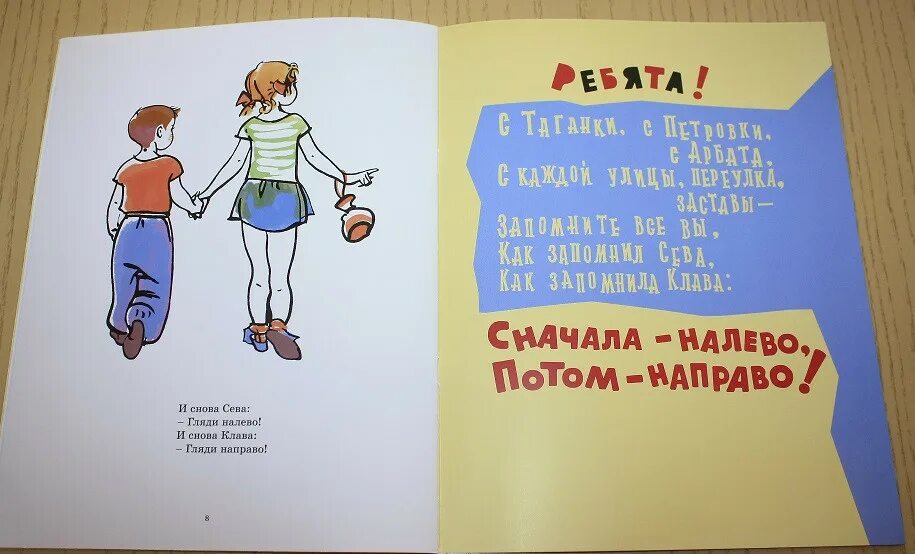 И снова Сева:
– Гляди налево!
И снова Клава:
– Гляди направо!
8
РЕБЯТА!
С ТАГАНКИ, С ПЕТРОВКИ,
С АРБАТА,
С КАЖДОЙ УЛИЦЫ, ПЕРЕУЛКА,
ЗАСТАВЫ—
ЗАПОМНИТЕ ВСЕ ВЫ,
КАК ЗАПОМНИЛ СЕВА,
КАК ЗАПОМНИЛА КЛАВА:
СНАЧАЛА – НАЛЕВО,
ПОТОМ – НАПРАВО!